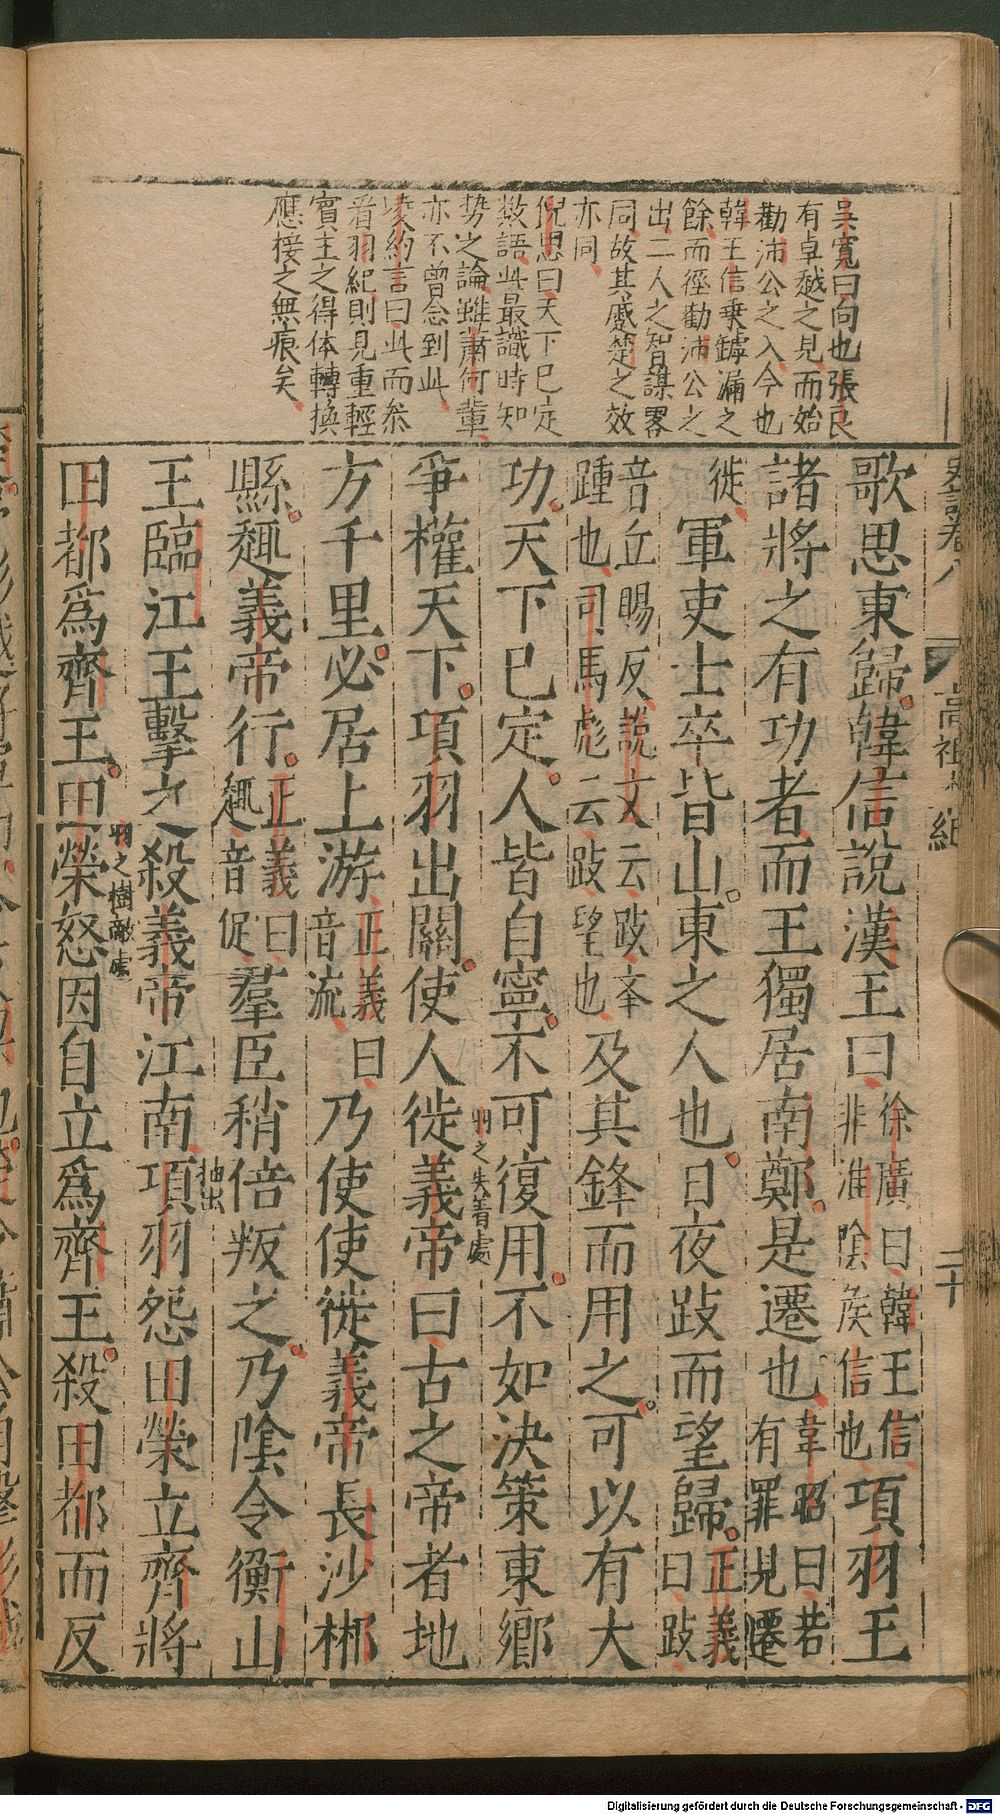 吳寬曰向也張良
有卓越之見而始
勸沛公之入今也
韓王信乗罅漏之
餘而徑勸沛公之
出二人之智謀畧
同故其感楚之效
亦同
倪思曰天下已定
數語此最識時知
勢之論雖蕭何輩
亦不曾念到此
凌約言曰此而叅
看羽紀則見重輕
賓主之得体轉換
應接之無痕矣
史記卷八
高祖本紀
二十
歌思東歸韓信說漢王曰徐廣曰韓王信非淮隂矦信也項羽王
諸將之有功者而王獨居南鄭是遷也韋昭曰若有罪見遷
徙軍吏士卒皆山東之人也日夜跂而望歸正義曰跂
音丘賜反説文云跂夆踵也司馬彪云跂望也及其鋒而用之可以有大
功天下已定人皆自寧不可復用不如決策東鄉
爭權天下項羽出關使人徙義帝曰古之帝者地
羽之失着處
方千里必居上游正義曰音流乃使使徙義帝長沙郴
縣趣義帝行正義曰趣音促羣臣稍倍叛之乃隂令衡山
王臨江王擊之殺義帝江南項羽怨田榮立齊將
抽出
田都爲齊王田榮怒因自立爲齊王殺田都而反
羽之樹敵處
Digitalisierung gefördert durch die Deutsche Forschungsgemeinschaft - DFG